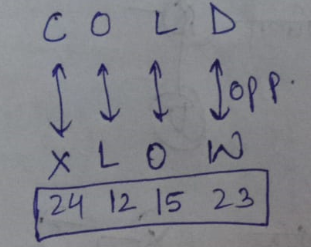 C O L D
opp.
X L O W
24 12 15 23